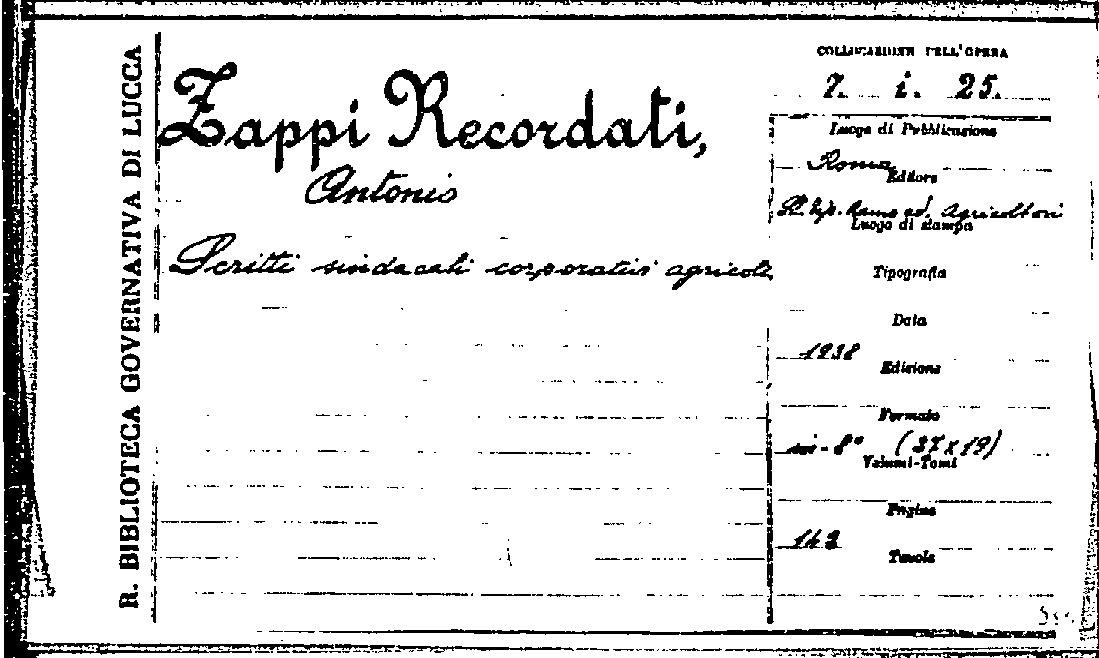 R. BIBLIOTECA GOVERNATIVA DI LUCCA
Zappi Recordati,
Antonio
Scritti sindacali corporativi agricoli
COLLOCAZIONE DELL'OPERA
7. i. 25.
Luogo di Pubblicazione
Roma
Editore
Tip. Ramo ed. Agricoltori
Luogo di stampa
Tipografia
Data
1938
Edizione
Formato
in-8° (27x19)
Volumi-Tomi
Pagine
142
Tavole